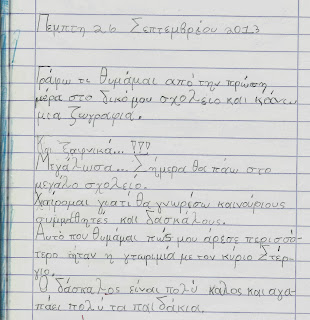 Πεμπτη 26 Σεπτεμβρίου 2013
Γράφω τι θυμάμαι από την πρώτη
μέρα στο δικό μου σχολειο και κάνω
μια ζωγραφια.
Και ξαφνικά... !!!
Μεγάλωσα... Σήμερα θα πάω στο
μεγάλο σχολείο.
Χαίρομαι γιατί θα γνωρίσω καινούριους
συμμαθητές και δασκάλους.
Αυτό που θυμάμαι πώς μου άρεσε περισσό-
τερο ήταν η γνωριμία με τον κύριο Στέρ-
γιο.
Ο δάσκαλος είναι πολύ καλος και αγα-
πάει πολύ τα παιδάκια.